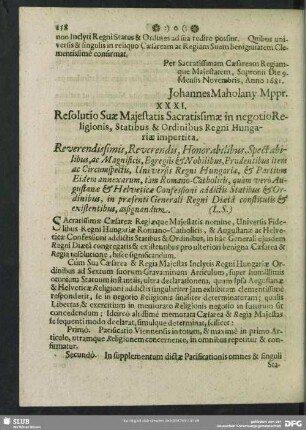 218
non Inclyti Regni Status & Ordines ad sua redire possint. Quibus uni-
versis & singulis in reliquo Cæsaream ac Regiam Suam benignitatem Cle-
mentissimè confirmat.
Per Sacratissimam Cæsaream Regiam-
que Majestatem, Supronii Die 9.
Mensis Novembris, Anno 1681.
Johannes Maholany Mppr.
XXXI.
Resolutio Suæ Majestatis Sacratissimæ in negotio Re-
ligionis, Statibus & Ordinibus Regni Hunga-
riæ impertita.
Reverendissimis, Reverendis, Honorabilibus, Spectabi-
libus, ac Magnificis, Egregiis & Nobilibus, Prudentibus item
ac Circumspectis, Universis Regni Hungariæ, & Partium
Eidem annexarum, tam Romano-Catholicis, quàm verò Augu-
stanæ & Helveticæ Confessioni addictis Statibus & Or-
dinibus, in præsenti Generali Regni Dietâ constitutis &
existentibus, assignandum.
(L.S.)
Sacratissimæ Cæsareæ Regiæque Majestatis nomine, Universis Fide-
libus Regni Hungariæ Romano-Catholicis, & Augustanæ ac Helve-
ticæ Confessioni addictis Statibus & Ordinibus, in hac Generali ejusdem
Regni Diætâ congregatis & existentibus pro ulteriori benigna Cæsarea &
Regia resolutione, hisce significandum.
Cum Sua Cæsarea & Regia Majestas Inclytis Regni Hungariæ Or-
dinibus ad Sextum suorum Gravaminum Articulum, super humillima
eorundem Statuum instantia, citra declarationem, quam ipsa Augustanæ
& Helveticæ Religioni addictis singulariter jam exhibitam clementissimè
respondent, se in negotio Religionis finaliter determinaturam; quali
Libertas & exercitium in memorato Religionis negotio in futurum sit
concedendum; Idcirco altissimè memorata Cæsarea & Regia Majestas
se sequenti modo declarat, simulque determinat, scilicet:
Primò. Pacificatio Viennensis in totum, & maximè in primo Ar-
ticulo, utramque Religionem concernente, in omnibus repetitur & con-
firmatur.
Secundò. In supplementum dictæ Pacificationis omnes & singuli
Sta-
SLUB
DFG